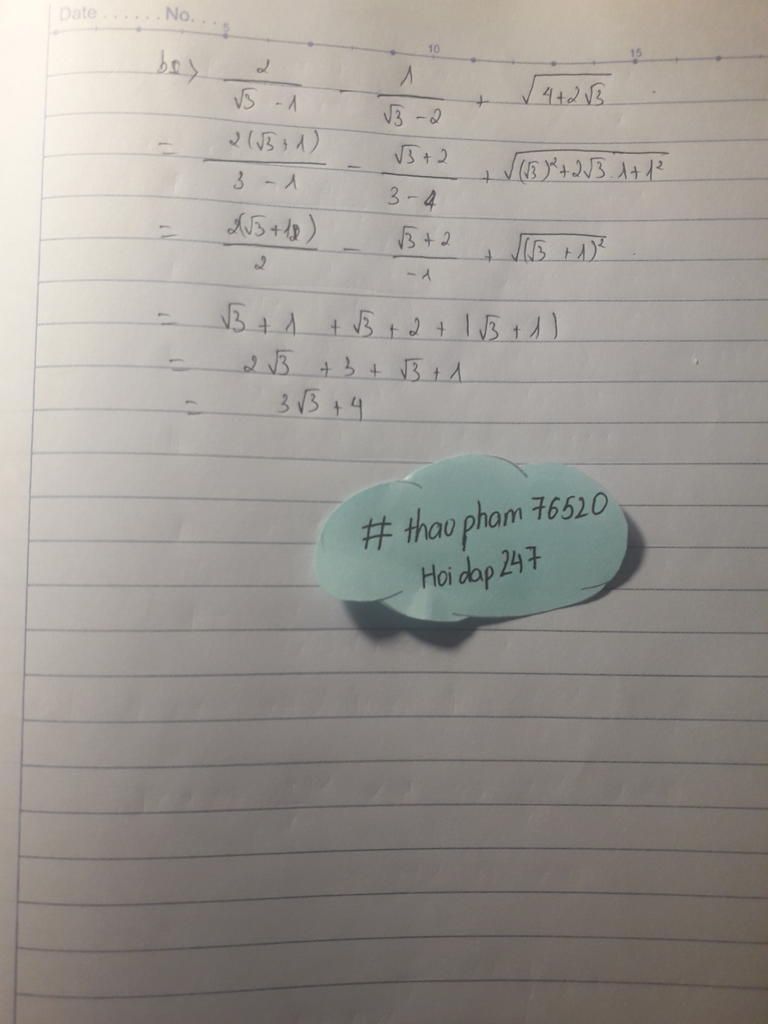 Date ...... No. ...
5 10 15
b2> 2/(√3 - 1) - 1/(√3 - 2) + √(4+2√3)
= 2(√3+1)/(3 - 1) - (√3+2)/(3-4) + √((√3)²+2√3.1+1²)
= 2(√3+1)/2 - (√3+2)/-1 + √((√3+1)²)
= √3 + 1 + √3 + 2 + |√3 + 1|
= 2√3 + 3 + √3 + 1
= 3√3 + 4
# thao pham 76520
Hoi dap 247